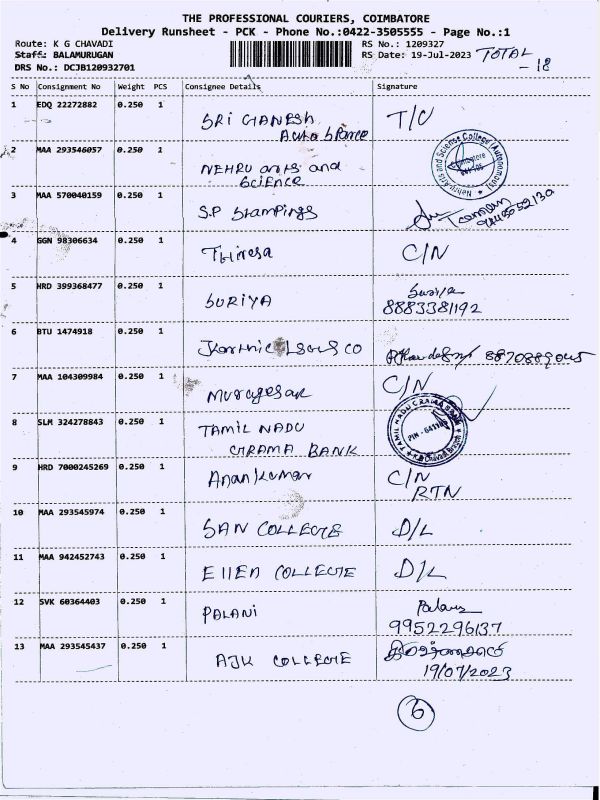 THE PROFESSIONAL COURIERS, COIMBATORE
Delivery Runsheet - PCK - Phone No.:0422-3505555 - Page No.:1
Route: K G CHAVADI
RS No.: 1209327
Staff: BALAMURUGAN
RS Date: 19-Jul-2023
TOTAL
- 18
DRS No.: DCJB120932701
S No Consignment No Weight PCS Consignee Details Signature
1 EDQ 22272882 0.250 1 SRI GANESH T/C
Auto Spares
2 MAA 293546057 0.250 1 NEHRU arts and Science Nehru Arts and Science College (Autonomous) Coimbatore 641 105
3 MAA 570040159 0.250 1 S.P Stampings
4 GGN 98306634 0.250 1 THiresa C/N
5 HRD 399368477 0.250 1 SURIYA Suriya
8883381192
6 BTU 1474918 0.250 1 8870889045
7 MAA 104309984 0.250 1 Murugesan C/N
8 SLM 324278843 0.250 1 TAMIL NADU GRAMA BANK TAMIL NADU GRAMA BANK PIN - 641105 K.G Chavadi Branch
9 HRD 7000245269 0.250 1 Anankumar C/N
RTN
10 MAA 293545974 0.250 1 SAN COLLEGE D/L
11 MAA 942452743 0.250 1 EllEN COLLEGE D/L
12 SVK 60364403 0.250 1 PALANI Palani
9952296137
13 MAA 293545437 0.250 1 AJK COLLEGE
19/07/2023
6